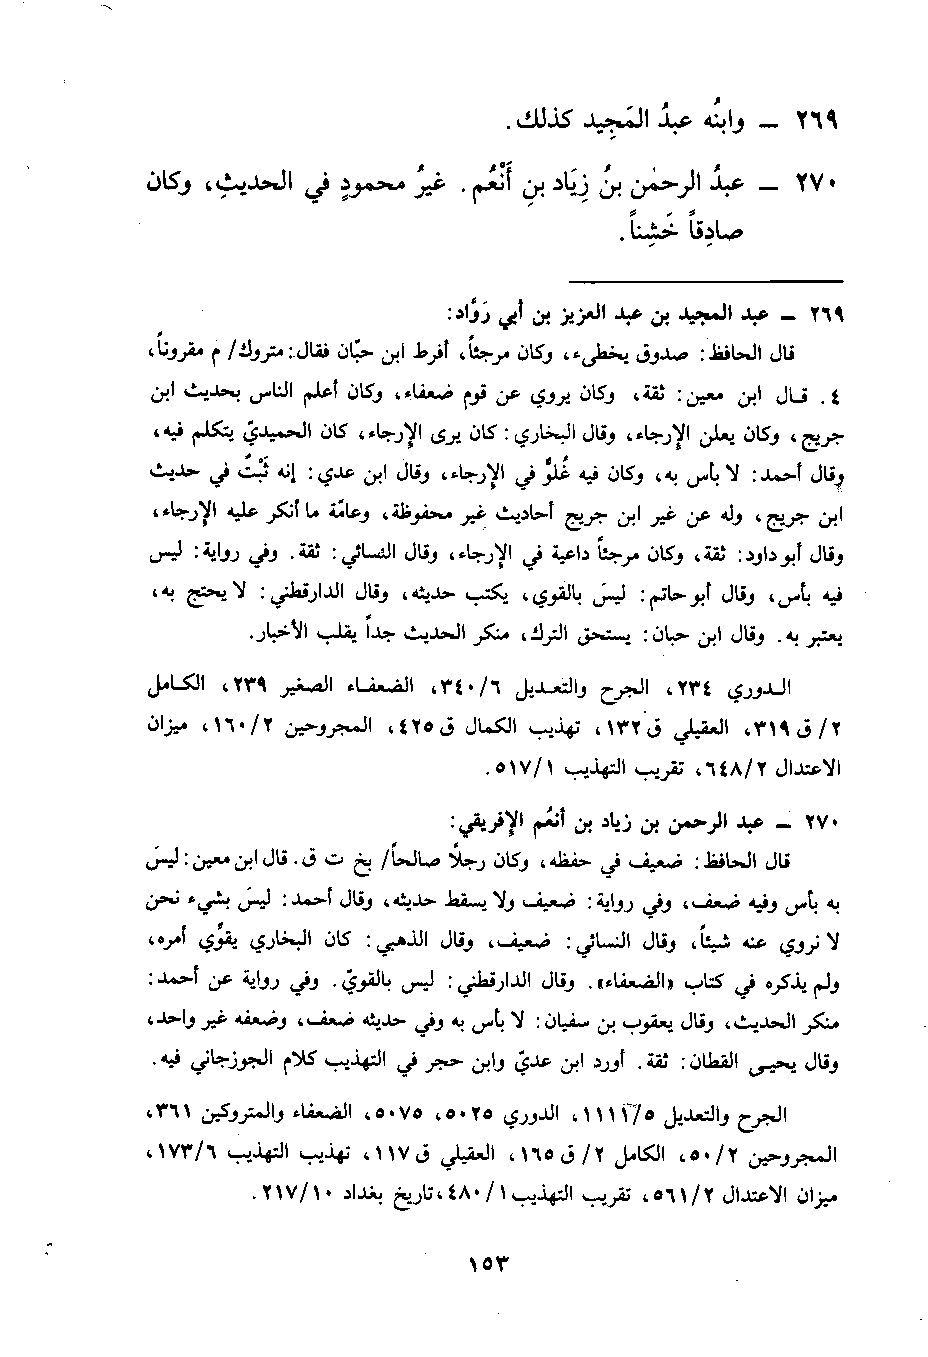 ٢٦٩ ــ وابنُه عبدُ المَجِيد كذلك.
٢٧٠ ــ عبدُ الرحمٰن بنُ زِيَاد بنِ أَنْعُم. غيرُ محمودٍ في الحديثِ، وكان
صادِقاً خَشِناً.
٢٦٩ ــ عبد المجيد بن عبد العزيز بن أبي رَوَّاد:
قال الحافظ: صدوق يخطىء، وكان مرجئاً، أفرط ابن حبّان فقال: متروك/ م مقروناً،
٤. قـال ابن معين: ثقة، وكان يروي عن قوم ضعفاء، وكان أعلم الناس بحديث ابن
جريج، وكان يعلن الإرجاء، وقال البخاري: كان يرى الإرجاء، كان الحميديّ يتكلم فيه،
وقال أحمد: لا بأس به، وكان فيه غُلوٌّ في الإرجاء، وقال ابن عدي: إنه ثَبْتٌ في حديث
ابن جريج، وله عن غير ابن جريج أحاديث غير محفوظة، وعامّة ما أنكر عليه الإرجاء،
وقال أبو داود: ثقة، وكان مرجئاً داعية في الإرجاء، وقال النسائي: ثقة. وفي رواية: ليس
فيه بأس، وقال أبو حاتم: ليسَ بالقوي، يكتب حديثه، وقال الدارقطني: لا يحتج به،
يعتبر به. وقال ابن حبان: يستحق الترك، منكر الحديث جداً يقلب الأخبار.
الـدوري ٢٣٤، الجرح والتعـديل ٣٤٠/٦، الضعفـاء الصغير ٢٣٩، الكـامل
٢/ ق ٣١٩، العقيلي ق ١٣٢، تهذيب الكمال ق ٤٢٥، المجروحين ١٦٠/٢، ميزان
الاعتدال ٦٤٨/٢، تقريب التهذيب ٥١٧/١.
٢٧٠ ــ عبد الرحمن بن زياد بن أنعُم الإفريقي:
قال الحافظ: ضعيف في حفظه، وكان رجلاً صالحاً/ بخ ت ق. قال ابن معين: ليسَ
به بأس وفيه ضعف، وفي رواية: ضعيف ولا يسقط حديثه، وقال أحمد: ليسَ بشيء نحن
لا نروي عنه شيئاً، وقال النسائي: ضعيف، وقال الذهبي: كان البخاري يقوّي أمره،
ولم يذكره في كتاب «الضعفاء». وقال الدارقطني: ليس بالقويّ. وفي رواية عن أحمد:
منكر الحديث، وقال يعقوب بن سفيان: لا بأس به وفي حديثه ضعف، وضعفه غير واحد،
وقال يحيـى القطان: ثقة. أورد ابن عديّ وابن حجر في التهذيب كلام الجوزجاني فيه.
الجرح والتعديل ١١١/٥، الدوري ٥٠٢٥، ٥٠٧٥، الضعفاء والمتروكين ٣٦١،
المجروحين ٥٠/٢، الكامل ٢/ ق ١٦٥، العقيلي ق ١١٧، تهذيب التهذيب ١٧٣/٦،
ميزان الاعتدال ٥٦١/٢، تقريب التهذيب ٤٨٠/١، تاريخ بغداد ٢١٧/١٠.
١٥٣